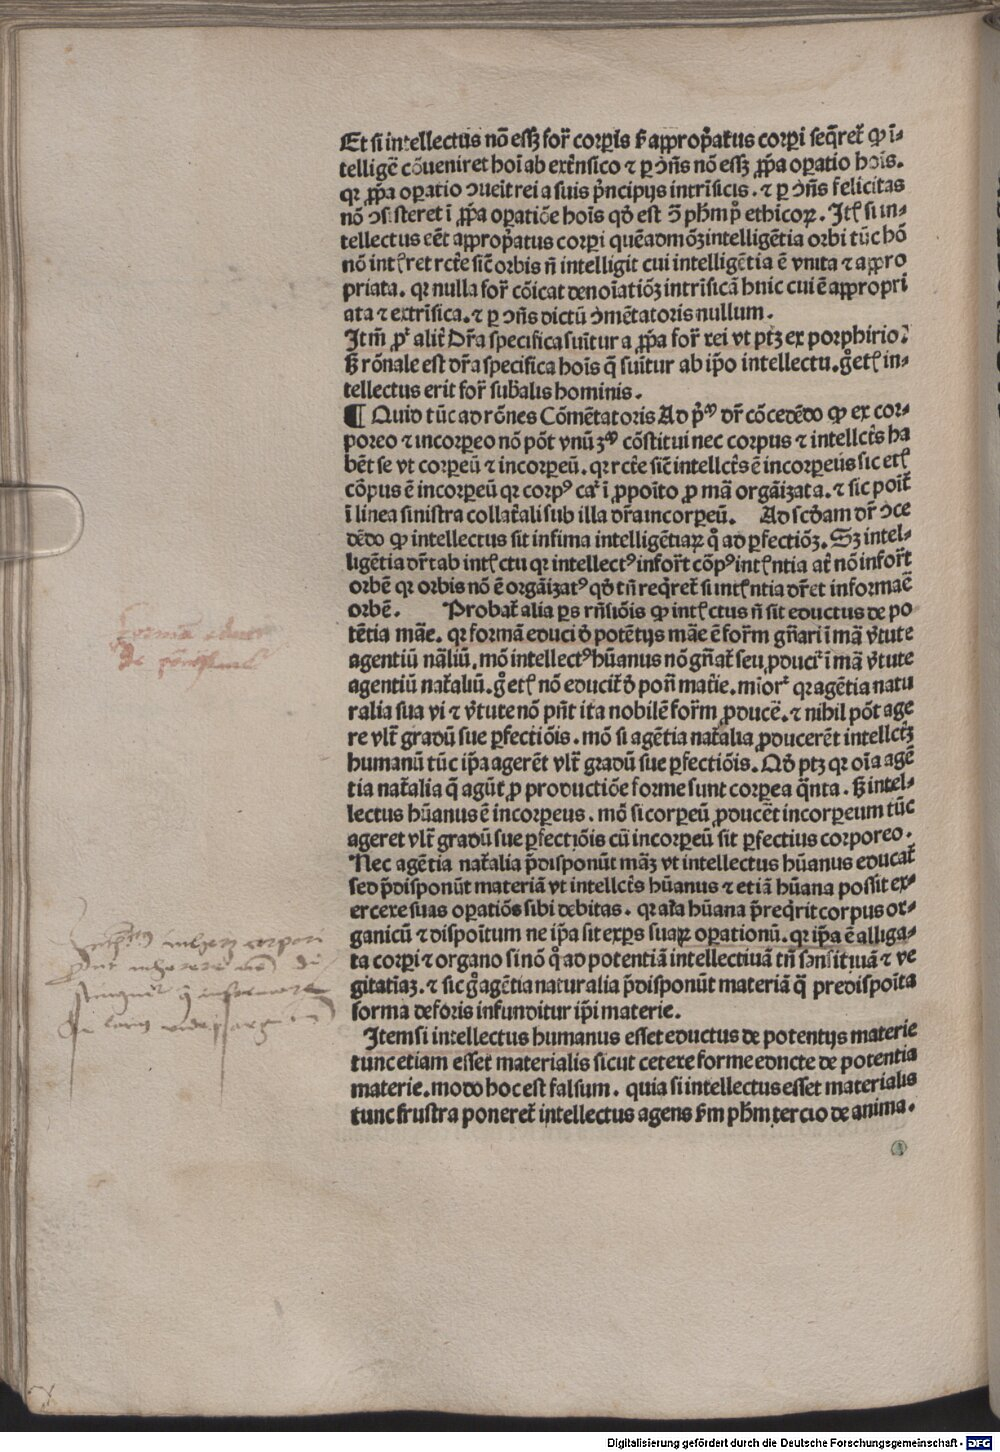 Et si intellectus nõ eſſꝫ for̃ corp̱ls ſꝫ app̱rop̃atus corp̱i ſeq̃ret̃ ꝙ ĩ-
telligẽ cõueniret hoĩ ab extĩnſico ⁊ p̱ ꝯñs nõ eſſꝫ ꝓp̃a oꝑatio hoĩs.
qꝛ ꝓp̃a oꝑatio ꝯueĩt rei a ſuis p̃ncipijs intrĩſicis. ⁊ ꝑ ꝯñs felicitas
nõ ꝯſiſteret ĩ ꝓp̃a oꝑatiõe hoĩs qđ eſt ꝯ̃ ph̃m pͦ ethicoꝝ. Itꝉ ſi in-
tellectus eẽt approp̃atus corꝑi quẽadmõꝫ intelligẽtia orbi tũc hõ
nõ intꝉret rct̃e ſic̃ orbis ñ intelligit cui intelligẽtia ẽ vnita ⁊ appro
priata. qꝛ nulla for̃ cõicat denoĩatiõꝫ intrĩſicã huic cui ẽ appropri
ata ⁊ extrĩſica. ⁊ ꝑ ꝯñs dictũ ꝯmẽtatoris nullum.
Itm̃ ꝓᷣ alit̃ Dr̃a ſpecifica ſuĩtur a ꝓp̃a for̃ rei vt ptꝫ ex porphirio.
ſꝫ rõnale eſt dr̃a ſpecifica hoĩs q̃ ſuĩtur ab ip̃o intellectu. gͦ etꝉ in-
tellectus erit for̃ ſub̃alis hominis.
¶ Quid tũc ad rõnes Cõmẽtatoris Ad p̃ᵐ dr̃ cõcedẽdo ꝙ ex cor-
poreo ⁊ incorꝑeo nõ põt vnũ ꝫᵐ cõſtitui nec corpus ⁊ intellct̃s ha
bẽt ſe vt corꝑeũ ⁊ incorꝑeũ. qꝛ rct̃e ſic̃ intellct̃s ẽ incorꝑeus ſic etꝉ
cõpus ẽ incorꝑeũ qꝛ corpꝰ caꝛᷣ ĩ ꝓpoĩto ꝓ mã orgãizata. ⁊ ſic poĩt̃
ĩ linea ſiniſtra collat̃ali ſub illa dr̃a incorꝑeũ. Ad ſcđam dr̃ ꝯce
dẽdo ꝙ intellectus ſit infima intelligẽtiaꝝ qͦ ad ꝑfectiõꝫ. Sꝫ intel-
ligẽtia dr̃t ab intꝉctu qꝛ intellectꝰ infor̃t cõpꝰ intꝉntia at̃ nõ infor̃t
orbẽ qꝛ orbis nõ ẽ orgãizatꝰ qđ tñ req̃ret̃ ſi intꝉntia dr̃et informaẽ
orbẽ. Probat̃ alia ꝑs rñſiõis ꝙ intꝉctus ñ ſit eductus de po
tẽtia mãe. qꝛ formã educi đ potẽtijs mãe ẽ for̃m gñari ĩ mã ṽtute
agentiũ nãliũ. mõ intellectꝰ hũanus nõ gñat̃ ſeu ꝓduciᷣ ĩ mã ṽtute
agentiũ nat̃aliũ. gͦ etꝉ nõ educit̃ đ poñ mat̃ie. mĩorᷣ qꝛ agẽtia natu
ralia ſua vi ⁊ ṽtute nõ pñt ita nobilẽ for̃m ꝓducẽ. ⁊ nihil põt age
re vlt̃ gradũ ſue ꝑfectiõis. mõ ſi agẽtia nat̃alia ꝓducerẽt intellct̃ꝫ
humanũ tũc ip̃a agerẽt vlt̃ gradũ ſue ꝑfectiõis. Qđ ptꝫ qꝛ oĩa agẽ
tia nat̃alia q̃ agũt ꝓ productiõe forme ſunt corꝑea q̃nta. ſꝫ intel-
lectus hũanus ẽ incorꝑeus. mõ ſi corꝑeũ ꝓducẽt incorꝑeum tũc
ageret vlt̃ gradũ ſue ꝑfectiõis cũ incorꝑeũ ſit ꝑfectius corporeo.
Nec agẽtia nat̃alia p̃diſponũt mãꝫ vt intellectus hũanus educat̃
ſed p̃diſponũt materiã vt intellct̃s hũanus ⁊ etiã hũana poſſit ex-
ercere ſuas oꝑatiões ſibi debitas. qꝛ aĩa hũana p̃req̃rit corpus or-
ganicũ ⁊ diſpoĩtum ne ip̃a ſit exꝑs ſuaꝝ oꝑationũ. qꝛ ip̃a ẽ alliga-
ta corꝑi ⁊ organo ſi nõ qͦ ad potentiã intellectiuã tñ ſenſitiuã ⁊ ve
gitatiãꝫ. ⁊ ſic gͦ agẽtia naturalia p̃diſponũt materiã q̃ prediſpoĩta
forma deforis infunditur ip̃i materie.
Item ſi intellectus humanus eſſet eductus de potentijs materie
tunc etiam eſſet materialis ſicut cetere forme educte de potentia
materie. modo hoc eſt falſum. quia ſi intellectus eſſet materialis
tunc fruſtra poneret̃ intellectus agens ſm̃ ph̃m tercio de anima.
Digitalisierung gefördert durch die Deutsche Forschungsgemeinschaft - DFG